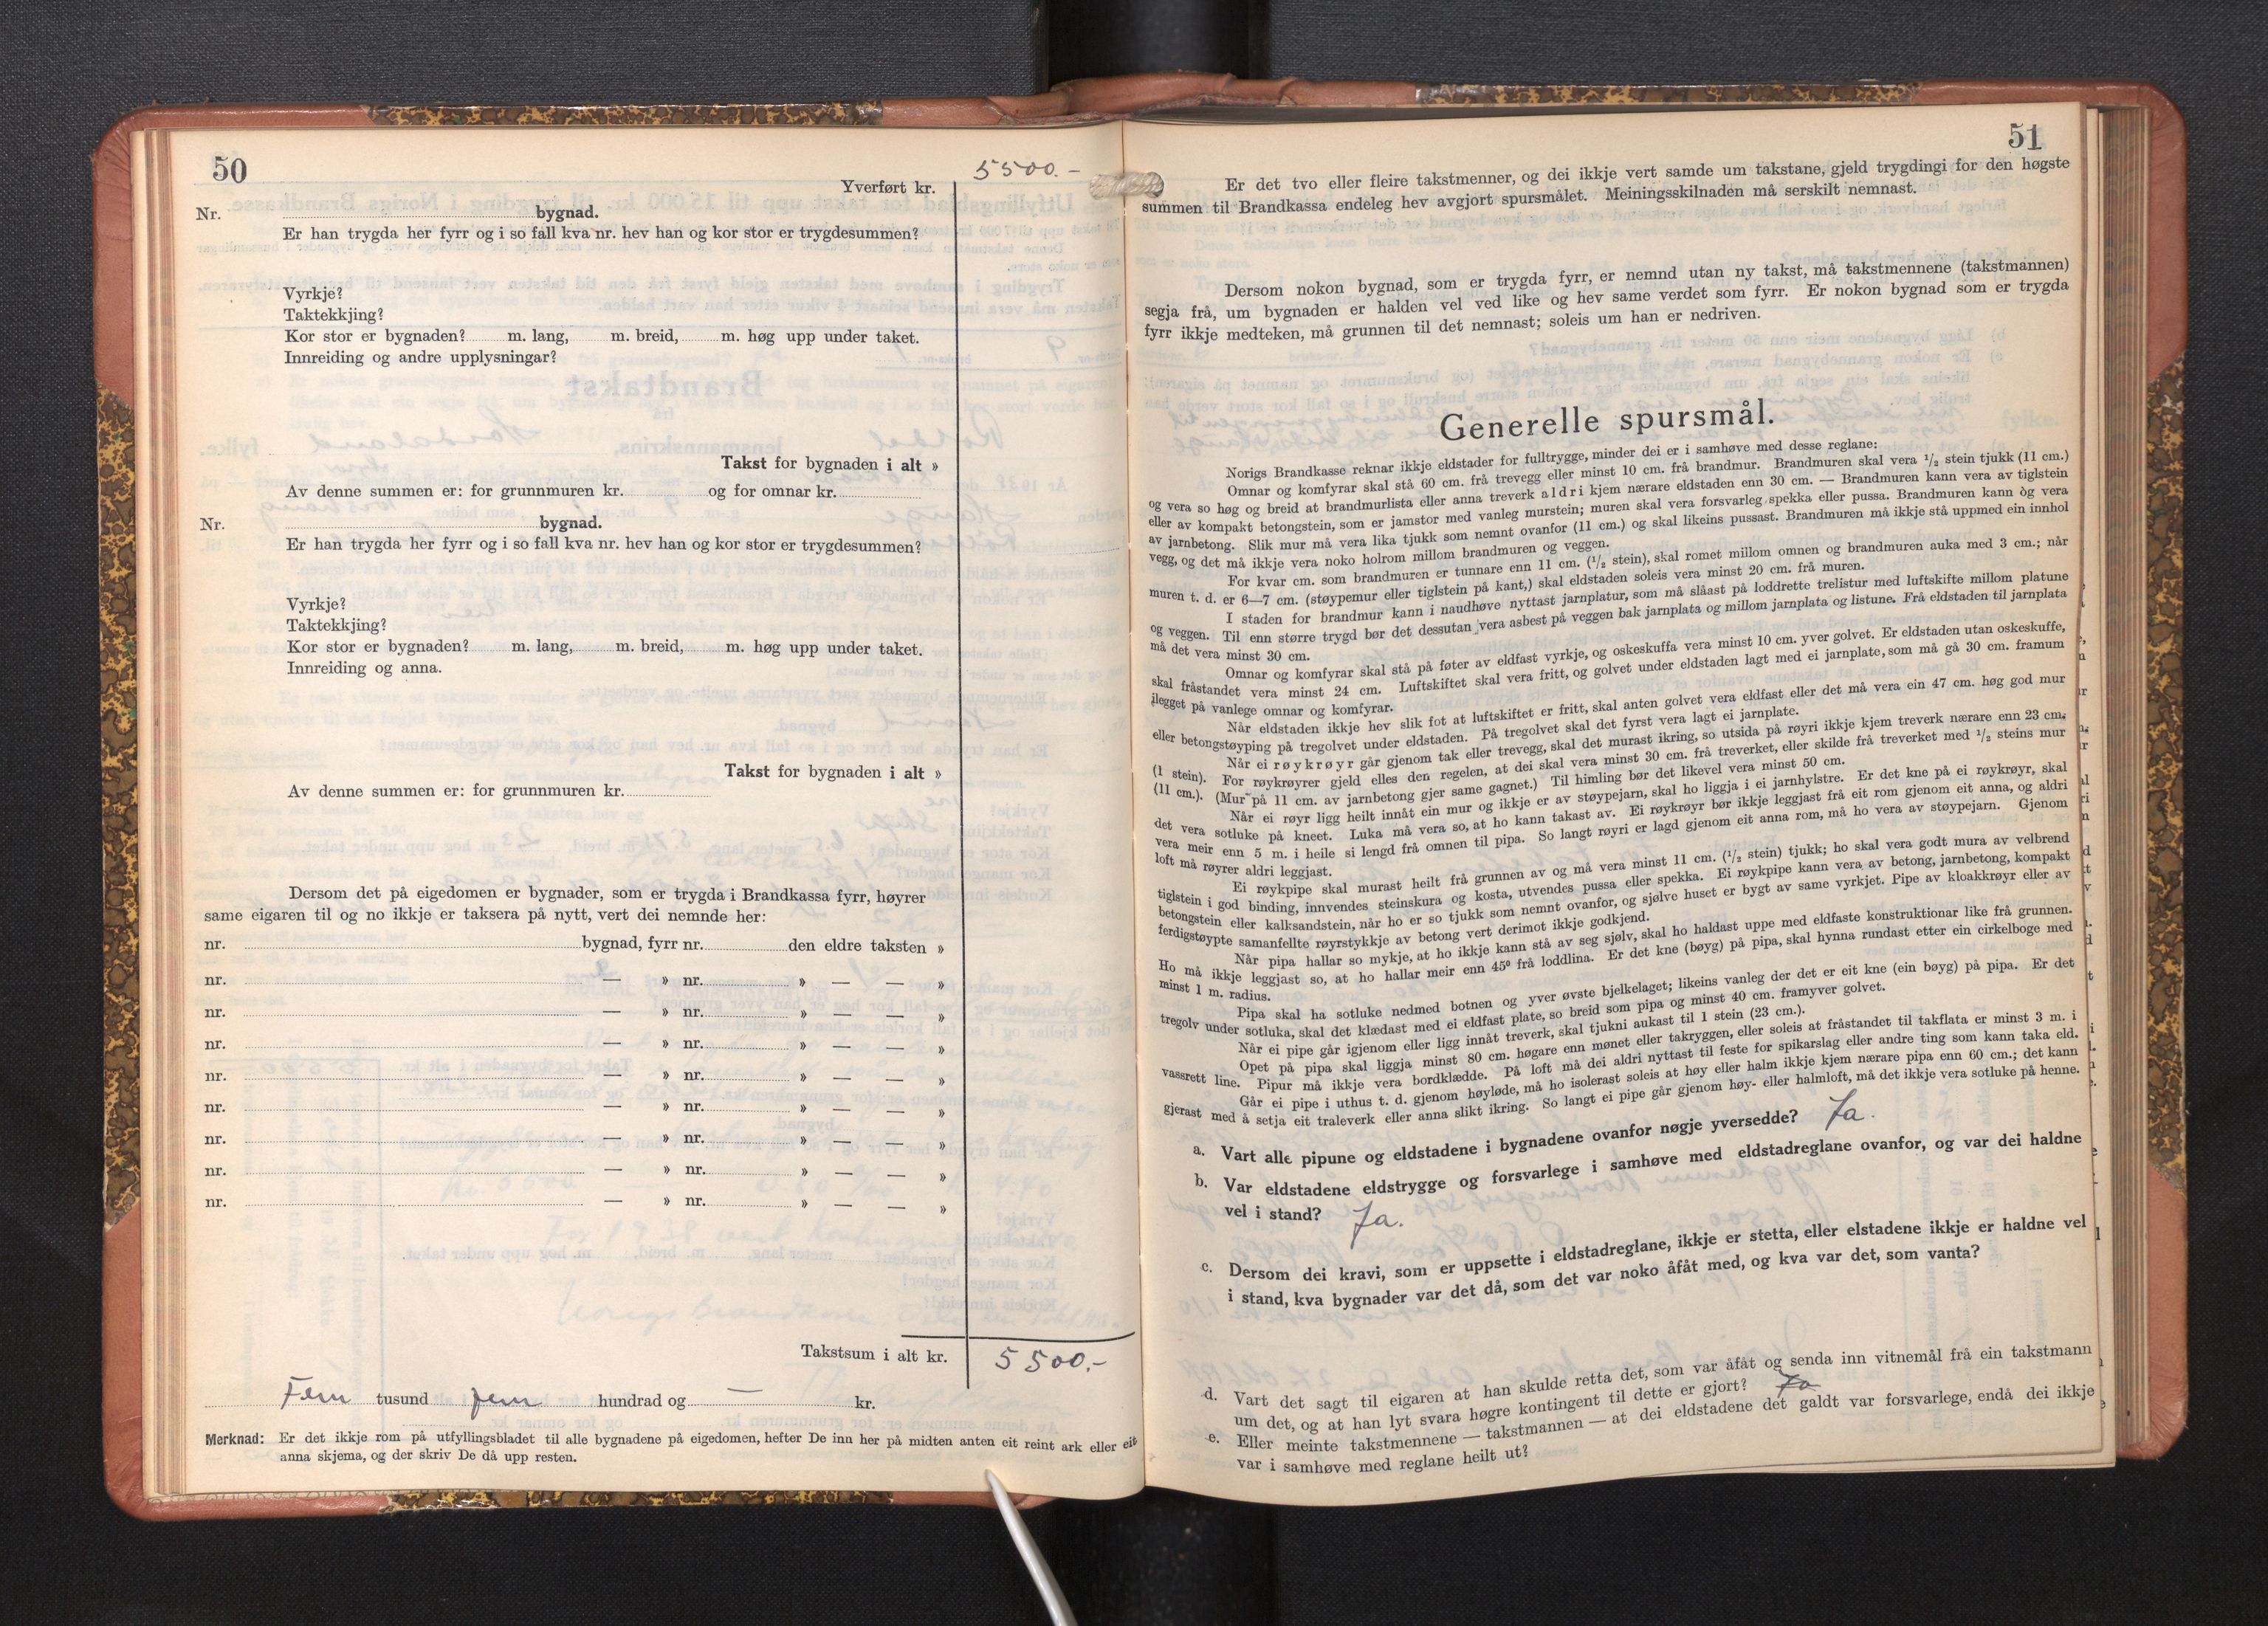 50
Yverført kr. 5500.-
Nr. bygnad.
Er han trygda her fyrr og i so fall kva nr. hev han og kor stor er trygdesummen?
Vyrkje?
Taktekkjing?
Kor stor er bygnaden? m. lang, m. breid, m. høg upp under taket.
Innreiding og andre upplysningar?
Takst for bygnaden i alt »
Av denne summen er: for grunnmuren kr. og for omnar kr.
Nr. bygnad.
Er han trygda her fyrr og i so fall kva nr. hev han og kor stor er trygdesummen?
Vyrkje?
Taktekkjing?
Kor stor er bygnaden? m. lang, m. breid, m. høg upp under taket.
Innreiding og anna.
Takst for bygnaden i alt »
Av denne summen er: for grunnmuren kr.
Dersom det på eigedomen er bygnader, som er trygda i Brandkassa fyrr, høyrer
same eigaren til og no ikkje er taksera på nytt, vert dei nemnde her:
nr. bygnad, fyrr nr. den eldre taksten »
nr. — » nr. » — — »
nr. — » nr. » — — »
nr. — » nr. » — — »
nr. — » nr. » — — »
nr. — » nr. » — — »
nr. — » nr. » — — »
nr. — » nr. » — — »
nr. — » nr. » — — »
Takstsum i alt kr. 5500.-
Fem tusund fem hundrad og — kr.
Merknad: Er det ikkje rom på utfyllingsbladet til alle bygnadene på eigedomen, hefter De inn her på midten anten eit reint ark eller eit
anna skjema, og der skriv De då upp resten.
51
Er det tvo eller fleire takstmenner, og dei ikkje vert samde um takstane, gjeld trygdingi for den høgste
summen til Brandkassa endeleg hev avgjort spursmålet. Meiningsskilnaden må serskilt nemnast.
Dersom nokon bygnad, som er trygda fyrr, er nemnd utan ny takst, må takstmennene (takstmannen)
segja frå, um bygnaden er halden vel ved like og hev same verdet som fyrr. Er nokon bygnad som er trygda
fyrr ikkje medteken, må grunnen til det nemnast; soleis um han er nedriven.
Generelle spursmål.
Norigs Brandkasse reknar ikkje eldstader for fulltrygge, minder dei er i samhøve med desse reglane:
Omnar og komfyrar skal stå 60 cm. frå trevegg eller minst 10 cm. frå brandmur. Brandmuren skal vera ½ stein tjukk (11 cm.)
og vera so høg og breid at brandmurlista eller anna treverk aldri kjem nærare eldstaden enn 30 cm. — Brandmuren kann vera av tiglstein
eller av kompakt betongstein, som er jamstor med vanleg murstein; muren skal vera forsvarleg spekka eller pussa. Brandmuren kann òg vera
av jarnbetong. Slik mur må vera lika tjukk som nemnt ovanfor (11 cm.) og skal likeins pussast. Brandmuren må ikkje stå uppmed ein innhol
vegg, og det må ikkje vera noko holrom millom brandmuren og veggen.
For kvar cm. som brandmuren er tunnare enn 11 cm. (½ stein), skal romet millom omnen og brandmuren auka med 3 cm.; når
muren t. d. er 6—7 cm. (støypemur eller tiglstein på kant,) skal eldstaden soleis vera minst 20 cm. frå muren.
I staden for brandmur kann i naudhøve nyttast jarnplatur, som må slåast på loddrette trelistur med luftskifte millom platune
og veggen. Til enn større trygd bør det dessutan vera asbest på veggen bak jarnplata og millom jarnplata og listune. Frå eldstaden til jarnplata
må det vera minst 30 cm.
Omnar og komfyrar skal stå på føter av eldfast vyrkje, og oskeskuffa vera minst 10 cm. yver golvet. Er eldstaden utan oskeskuffe,
skal fråstandet vera minst 24 cm. Luftskiftet skal vera fritt, og golvet under eldstaden lagt med ei jarnplate, som må gå 30 cm. framum
ilegget på vanlege omnar og komfyrar.
Når eldstaden ikkje hev slik fot at luftskiftet er fritt, skal anten golvet vera eldfast eller det må vera ein 47 cm. høg god mur
eller betongstøyping på tregolvet under eldstaden. På tregolvet skal det fyrst vera lagt ei jarnplate.
Når ei røykrøyr går gjenom tak eller trevegg, skal det murast ikring, so utsida på røyri ikkje kjem treverk nærare enn 23 cm.
(1 stein). For røykrøyrer gjeld elles den regelen, at dei skal vera minst 30 cm. frå treverket, eller skilde frå treverket med ½ steins mur
(11 cm.). (Mur på 11 cm. av jarnbetong gjer same gagnet.) Til himling bør det likevel vera minst 50 cm.
Når ei røyr ligg heilt innåt ein mur og ikkje er av støypejarn, skal ho liggja i ei jarnhylstre. Er det kne på ei røykrøyr, skal
det vera sotluke på kneet. Luka må vera so, at ho kann takast av. Ei røykrøyr bør ikkje leggjast frå eit rom gjenom eit anna, og aldri
vera meir enn 5 m. i heile si lengd frå omnen til pipa. So langt røyri er lagd gjenom eit anna rom, må ho vera av støypejarn. Gjenom
loft må røyrer aldri leggjast.
Ei røykpipe skal murast heilt frå grunnen av og må vera minst 11 cm. (½ stein) tjukk; ho skal vera godt mura av velbrend
tiglstein i god binding, innvendes steinskura og kosta, utvendes pussa eller spekka. Ei røykpipe kann vera av betong, jarnbetong, kompakt
betongstein eller kalksandstein, når ho er so tjukk som nemnt ovanfor, og sjølve huset er bygt av same vyrkjet. Pipe av kloakkrøyr eller av
ferdigstøypte samanfellte røyrstykkje av betong vert derimot ikkje godkjend.
Når pipa hallar so mykje, at ho ikkje kann stå av seg sjølv, skal ho haldast uppe med eldfaste konstruktionar like frå grunnen.
Ho må ikkje leggjast so, at ho hallar meir enn 45° frå loddlina. Er det kne (bøyg) på pipa, skal hynna rundast etter ein cirkelboge med
minst 1 m. radius.
Pipa skal ha sotluke nedmed botnen og yver øvste bjelkelaget; likeins vanleg der det er eit kne (ein bøyg) på pipa. Er det
tregolv under sotluka, skal det klædast med ei eldfast plate, so breid som pipa og minst 40 cm. framyver golvet.
Når ei pipe går igjenom eller ligg innåt treverk, skal tjukni aukast til 1 stein (23 cm.).
Opet på pipa skal liggja minst 80 cm. høgare enn mønet eller takryggen, eller soleis at fråstandet til takflata er minst 3 m. i
vassrett line. Pipur må ikkje vera bordklædde. På loft må dei aldri nyttast til feste for spikarslag eller andre ting som kann taka eld.
Går ei pipe i uthus t. d. gjenom høyløde, må ho isolerast soleis at høy eller halm ikkje kjem nærare pipa enn 60 cm.; det kann
gjerast med å setja eit traleverk eller anna slikt ikring. So langt ei pipe går gjenom høy- eller halmloft, må det ikkje vera sotluke på henne.
a. Vart alle pipune og eldstadene i bygnadene ovanfor nøgje yversedde? Ja.
b. Var eldstadene eldstrygge og forsvarlege i samhøve med eldstadreglane ovanfor, og var dei haldne
vel i stand? Ja.
c. Dersom dei kravi, som er uppsette i eldstadreglane, ikkje er stetta, eller elstadene ikkje er haldne vel
i stand, kva bygnader var det då, som det var noko åfåt med, og kva var det, som vanta?
d. Vart det sagt til eigaren at han skulde retta det, som var åfåt og senda inn vitnemål frå ein takstmann
um det, og at han lyt svara høgre kontingent til dette er gjort? Ja
e. Eller meinte takstmennene — takstmannen — at dei eldstadene det galdt var forsvarlege, endå dei ikkje
var i samhøve med reglane heilt ut?